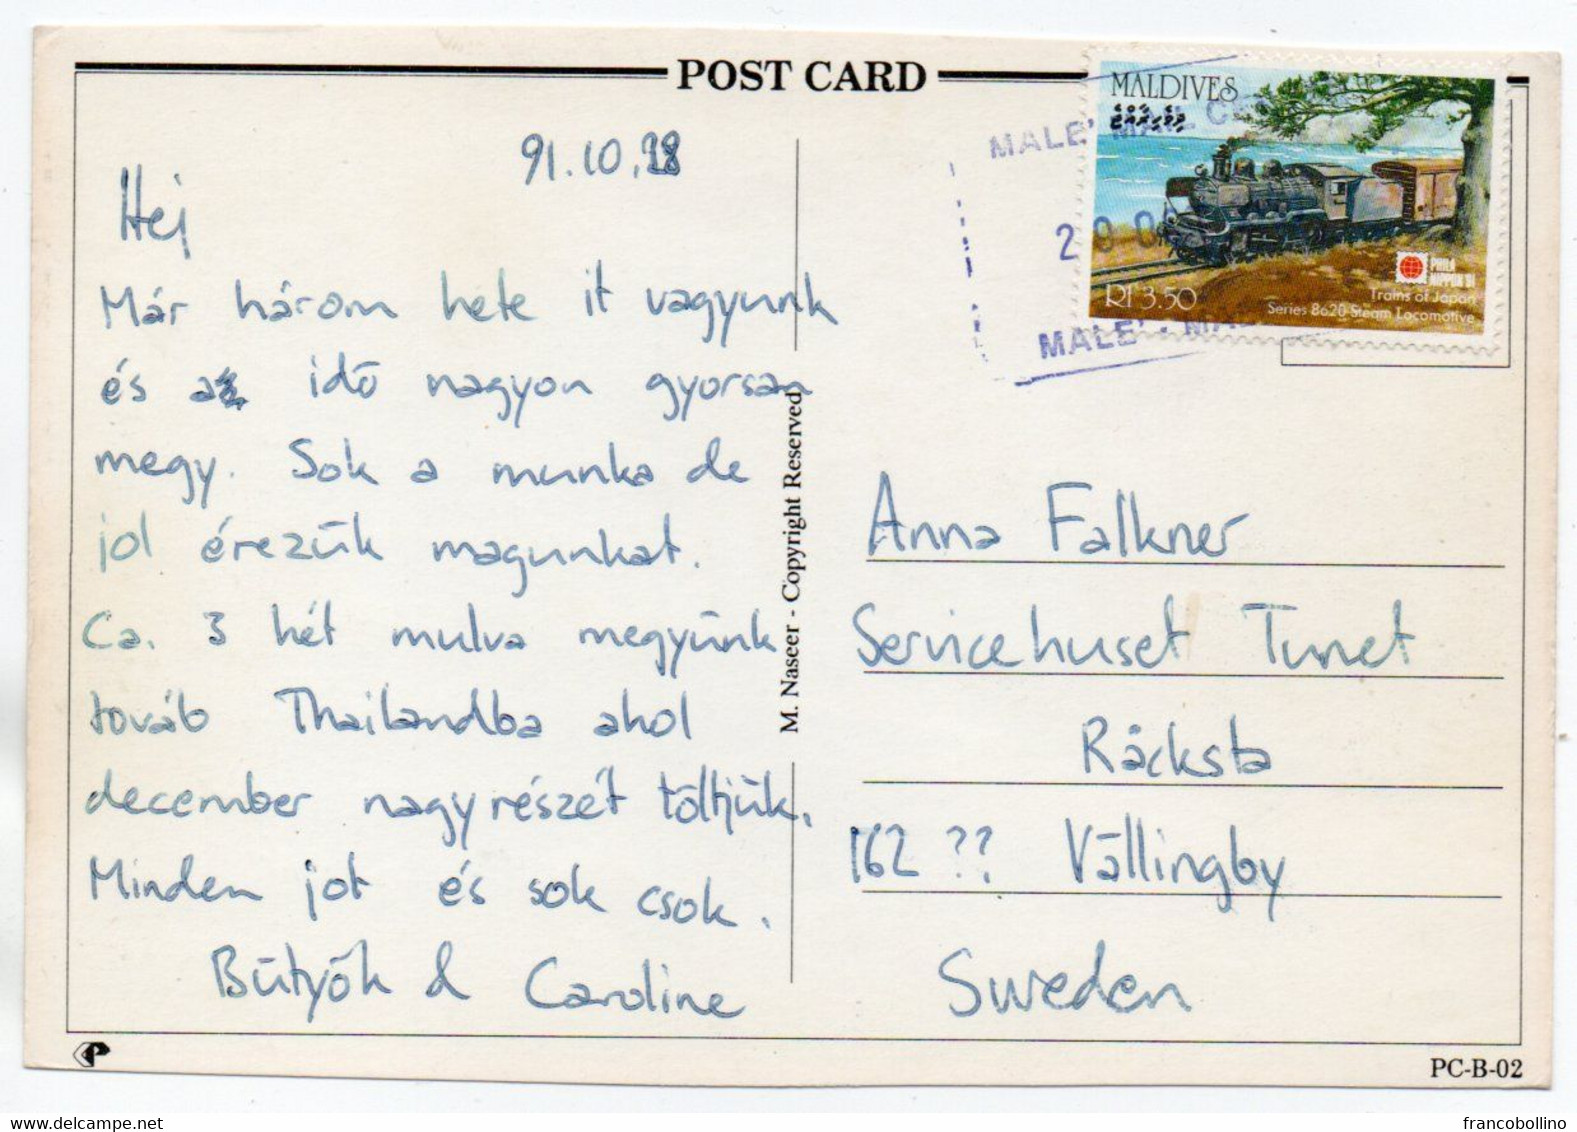 POST CARD
91.10.28
Hej
Már három hete it vagyunk
és az idő nagyon gyorsan
megy. Sok a munka de
jol érezük magunkat.
Ca. 3 hét mulva megyünk
továb Thailandba ahol
december nagyrészét töltjük.
Minden jot és sok csok.
Bütyök & Caroline
M. Naseer - Copyright Reserved
MALDIVES
Rf 3.50
PHILA
NIPPON '91
Trains of Japan
Series 8620-Steam Locomotive
MALE' MAIL
MALE'
Anna Falkner
Servicehuset Tunet
Räcksta
162 ?? Vällingby
Sweden
PC-B-02
francobollino